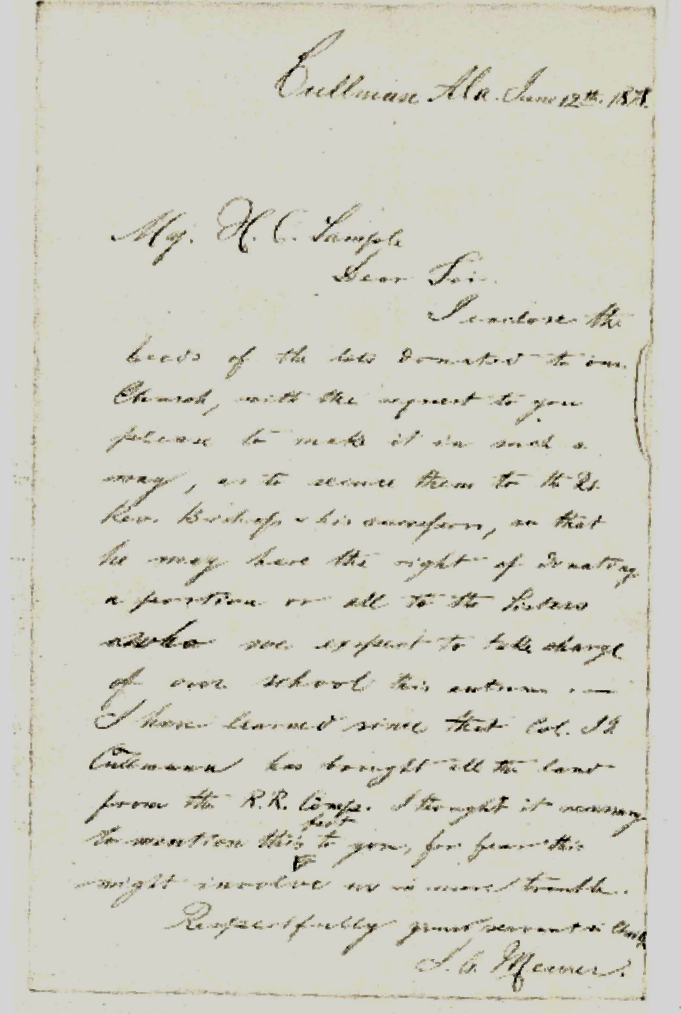 Cullman Ala. June 12th. 1878.
Mr. H. C. Sample
Dear Sir.
I enclose the
Deeds of the lots donated to our
Church, with the request to you
please to make it in such a
way, as to secure them to the Rt.
Rev. Bishop & his successors, so that
he may have the right of donating
a portion or all to the Sisters
who we expect to take charge
of our school this autumn. —
I have learned since that Col. J. G.
Cullmann has bought all the land
from the R.R. Comp. I thought it necessary
to mention this fact to you, for fear this
might involve us in more trouble.
Respectfully your servant in Christ
J. A. Meurer.